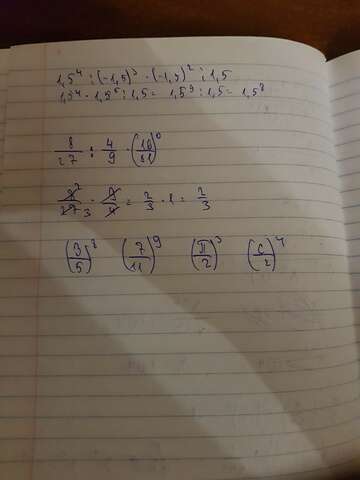 1,5⁴ : (-1,5)³ · (-1,5)² : 1,5
1,5⁴ · 1,5⁵ : 1,5 = 1,5⁹ : 1,5 = 1,5⁸
8/27 : 4/9 · (18/81)⁰
8²/27 3 · 9/4 = 2/3 · 1 = 2/3
(3/5)⁸ (7/11)⁹ (π/2)³ (c/2)⁴